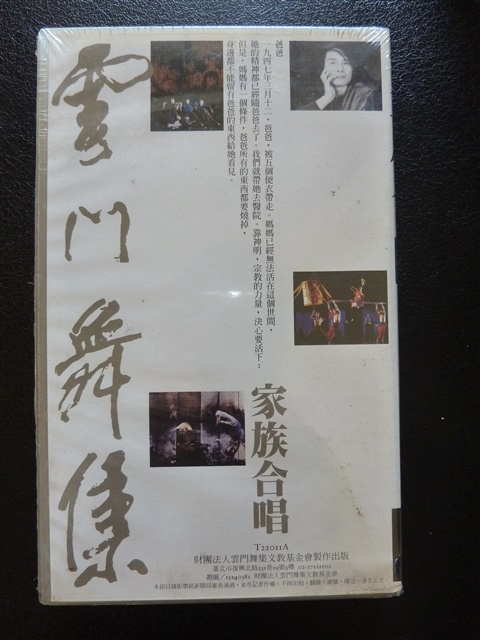 雲門舞集
爸爸
一九四七年三月十二，爸爸，被五個便衣帶走。媽媽已經無法活在這個世間，
她的精神都已經隨爸爸去了。我們就帶她去醫院。靠神明，宗教的力量，決心要活下；
但是，媽媽有一個條件，爸爸所有的東西都要燒掉，
身邊都不能留有爸爸的東西給她看見。
家族合唱
T22011A
財團法人雲門舞集文教基金會製作出版
財團法人雲門舞集文教基金會